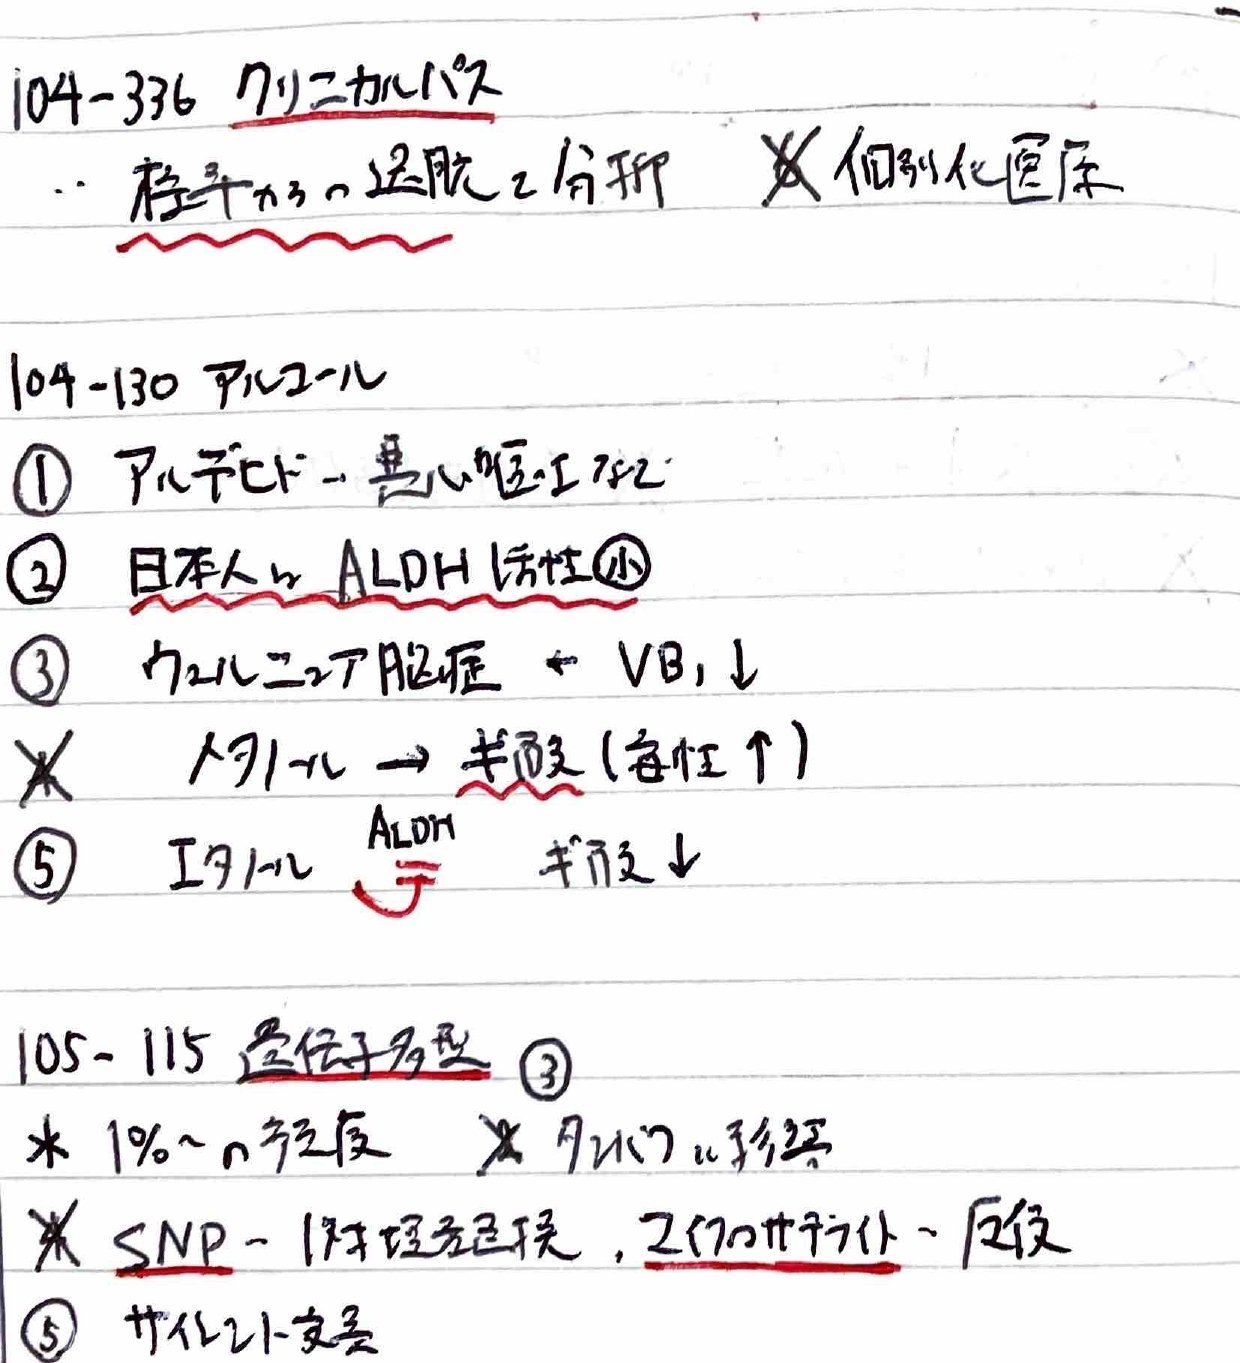 104-336 クリニカルパス
‥ 標準からの逸脱を分析 ※ 個別化医療
104-130 アルコール
① アルデヒド - 悪心嘔吐など
② 日本人は ALDH 活性㊥小
③ ウェルニュア脳症 ← VB₁ ↓
※ メタノール → ギ酸 (毒性 ↑)
ALDH
⑤ エタノール ギ酸 ↓
105-115 遺伝子多型 ③
* 1%~の頻度 ※ タンパクに影響
※ SNP - 1対塩基置換 , マイクロサテライト - 反復
⑤ サイレント変異